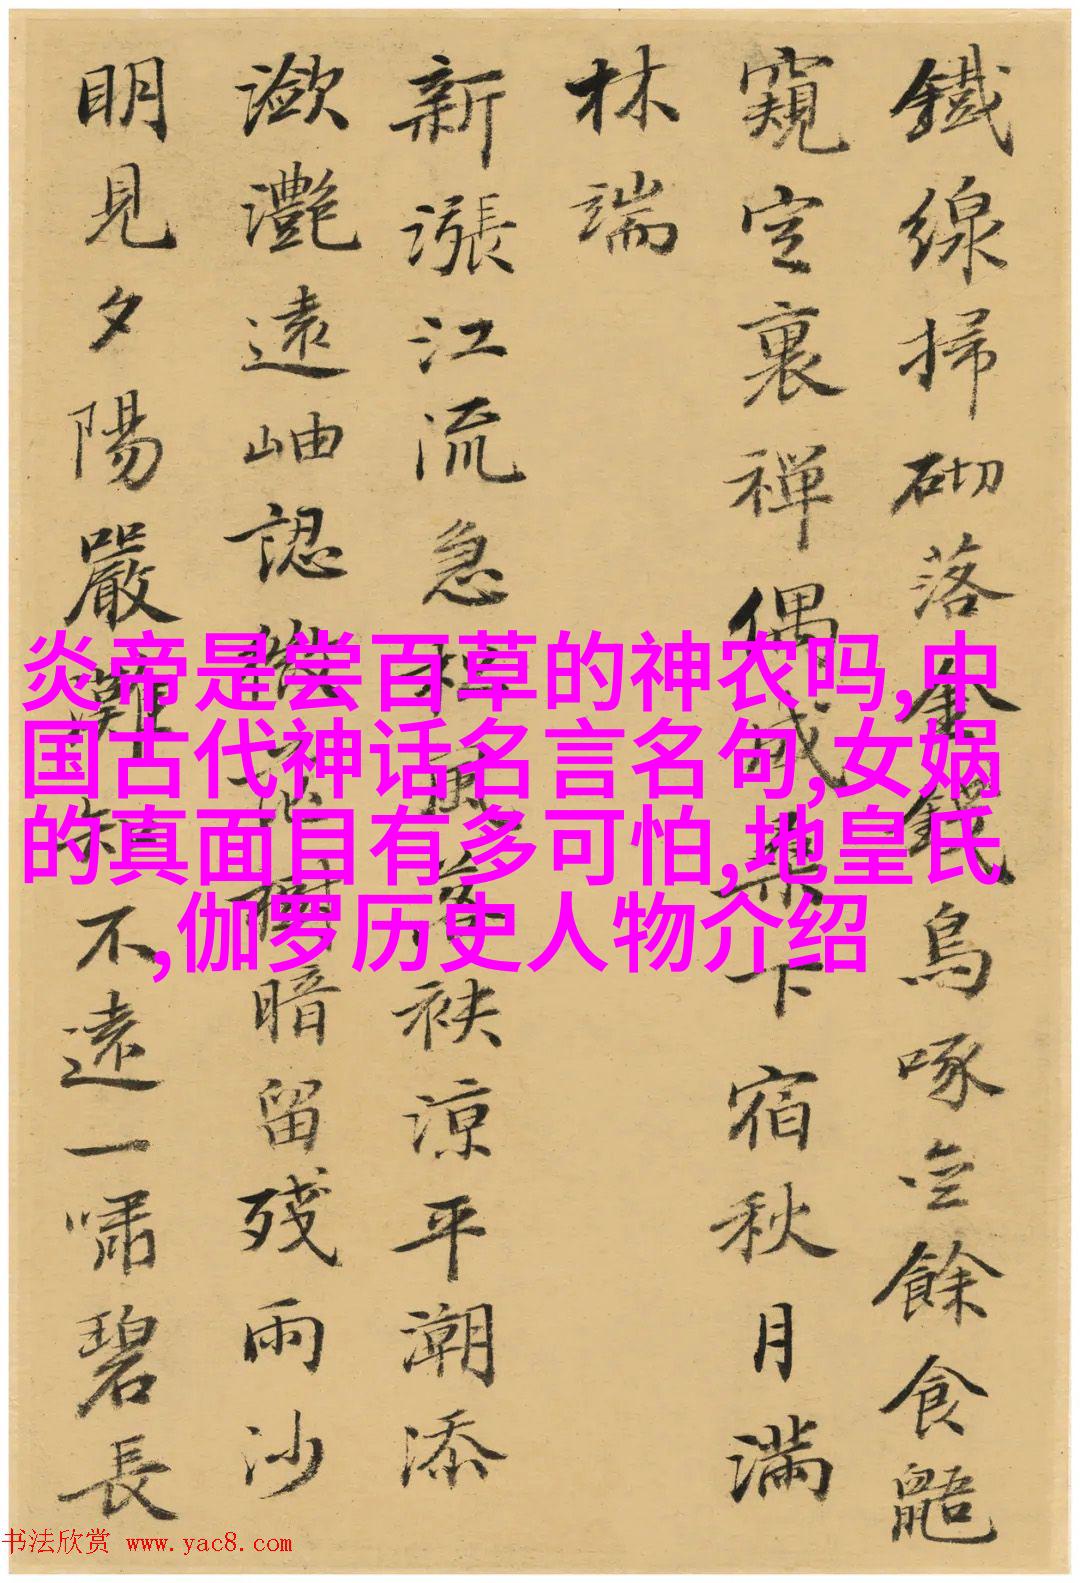 鐵線掃砌落金烏啄空餘食鼯
窺定裏禪偶成桑下宿秋月滿
林端
新漲江流急風袂涼平潮添
瀲灩遠岫認微茫樹暗留殘雨沙
明見夕陽嚴灘知不遠一嘯碧長
炎帝是尝百草的神农吗,中
国古代神话名言名句,女娲
的真面目有多可怕,地皇氏
,伽罗历史人物介绍
书法欣赏 www.yac8.com